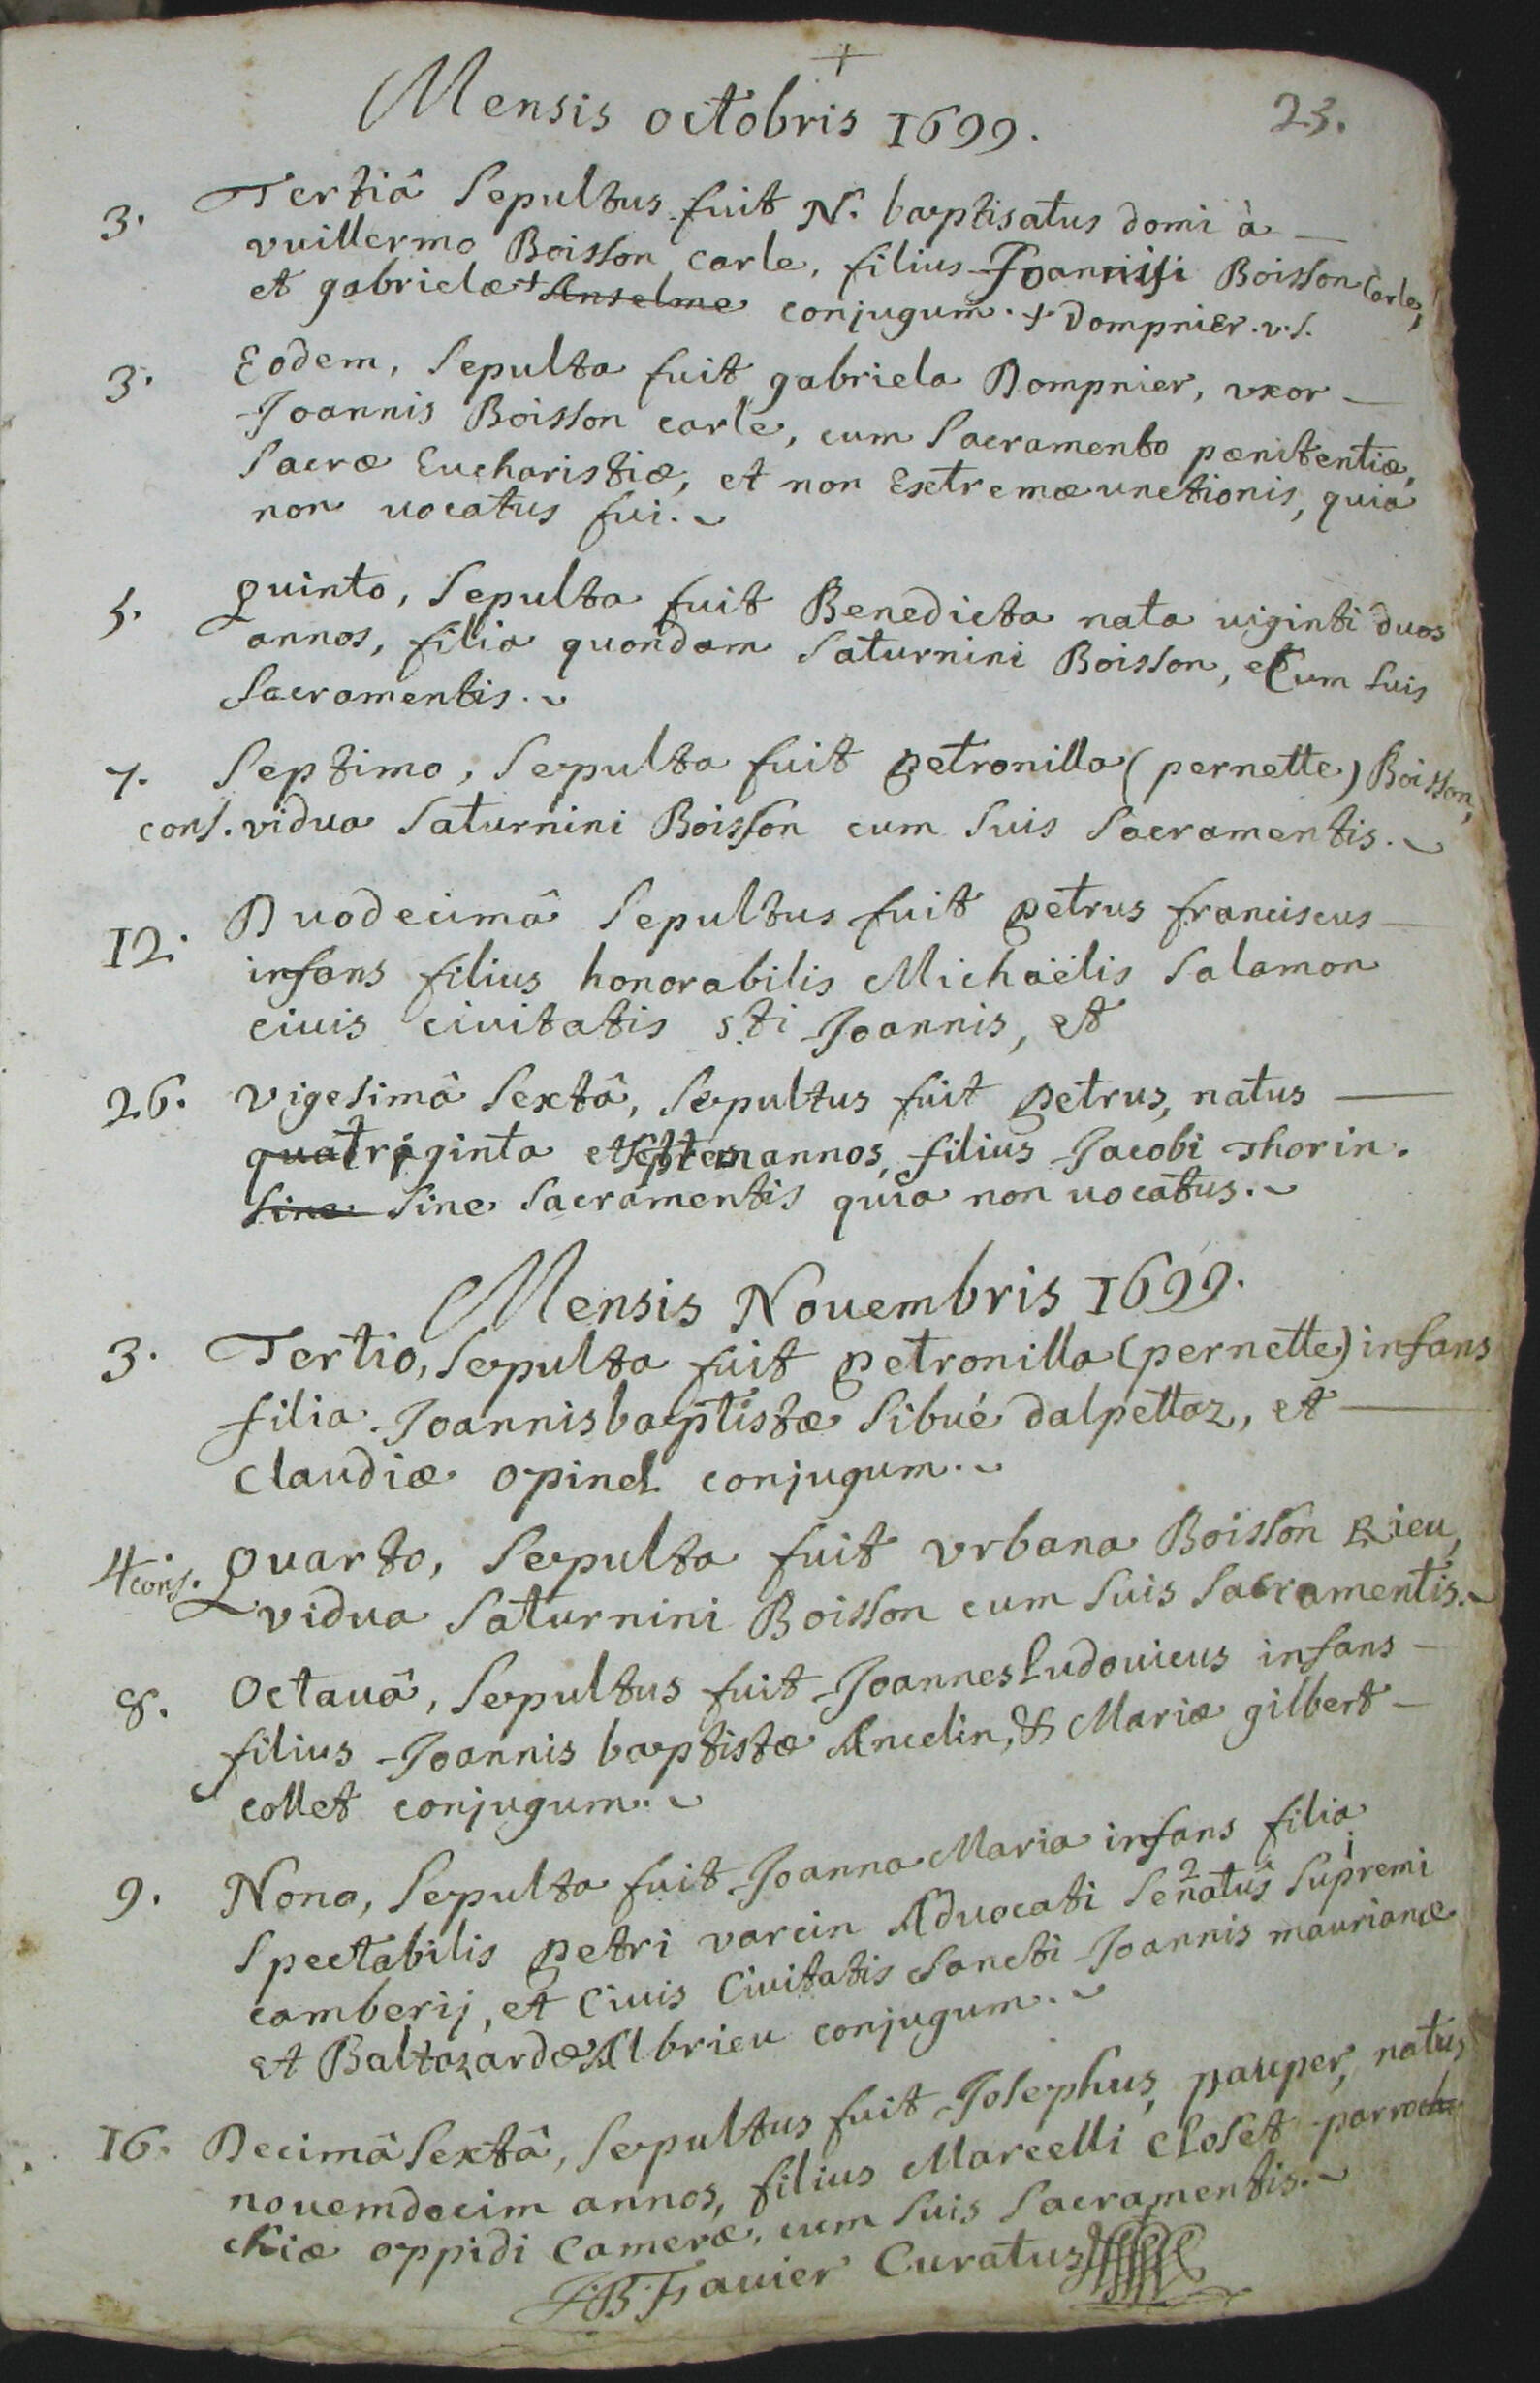 +
Mensis octobris 1699. 23.
3. Tertiâ Sepultus fuit N. baptisatus domi à
vuillermo Boisson carle, filius Joannis Boisson Carle,
et gabrielæ + Anselme conjugum. + Dompnier. v. s.
3. Eodem, Sepulta fuit gabriela Dompnier, vxor
Joannis Boisson carle, cum Sacramento pœnitentiæ,
Sacræ Eucharistiæ, et non Extremæ unctionis, quia
non uocatus fui.
5. Quinto, Sepulta fuit Benedicta nata uiginti duos
annos, filia quondam Saturnini Boisson, et Cum Suis
Sacramentis.
7. Septimo, Sepulta fuit petronilla (pernette) Boisson,
cons. vidua Saturnini Boisson cum Suis Sacramentis.
12. Duodecimâ Sepultus fuit petrus franciscus
infans filius honorabilis Michaëlis Salamon
ciuis ciuitatis sti Joannis, et
26. Vigesimâ Sextâ, Sepultus fuit petrus, natus
triginta et annos, filius Jacobi Thorin.
Sine Sine Sacramentis quia non uocatus.
Mensis Nouembris 1699.
3. Tertio, Sepulta fuit petronilla (pernette) infans
filia Joannis baptistæ Sibué dalpettaz, et
Claudiæ opinel conjugum.
4 cons. Quarto, Sepulta fuit vrbana Boisson Rieu,
vidua Saturnini Boisson cum Suis Sacramentis.
8. Octauâ, Sepultus fuit Joannes Ludouicus infans
filius Joannis baptistæ Ancelin, & Mariæ gilbert
collet conjugum.
9. Nono, Sepulta fuit Joanna Maria infans filia
Spectabilis petri varcin Aduocati Senatûs Supremi
camberij, et Ciuis Ciuitatis Sancti Joannis maurianæ
et Baltazardæ Albrieu conjugum.
16. Decimâ Sextâ, Sepultus fuit Josephus, pauper, natus
nouemdecim annos, filius Marcelli Closet parro
chiæ oppidi Cameræ, cum Suis Sacramentis.
J. B. Fauier Curatus